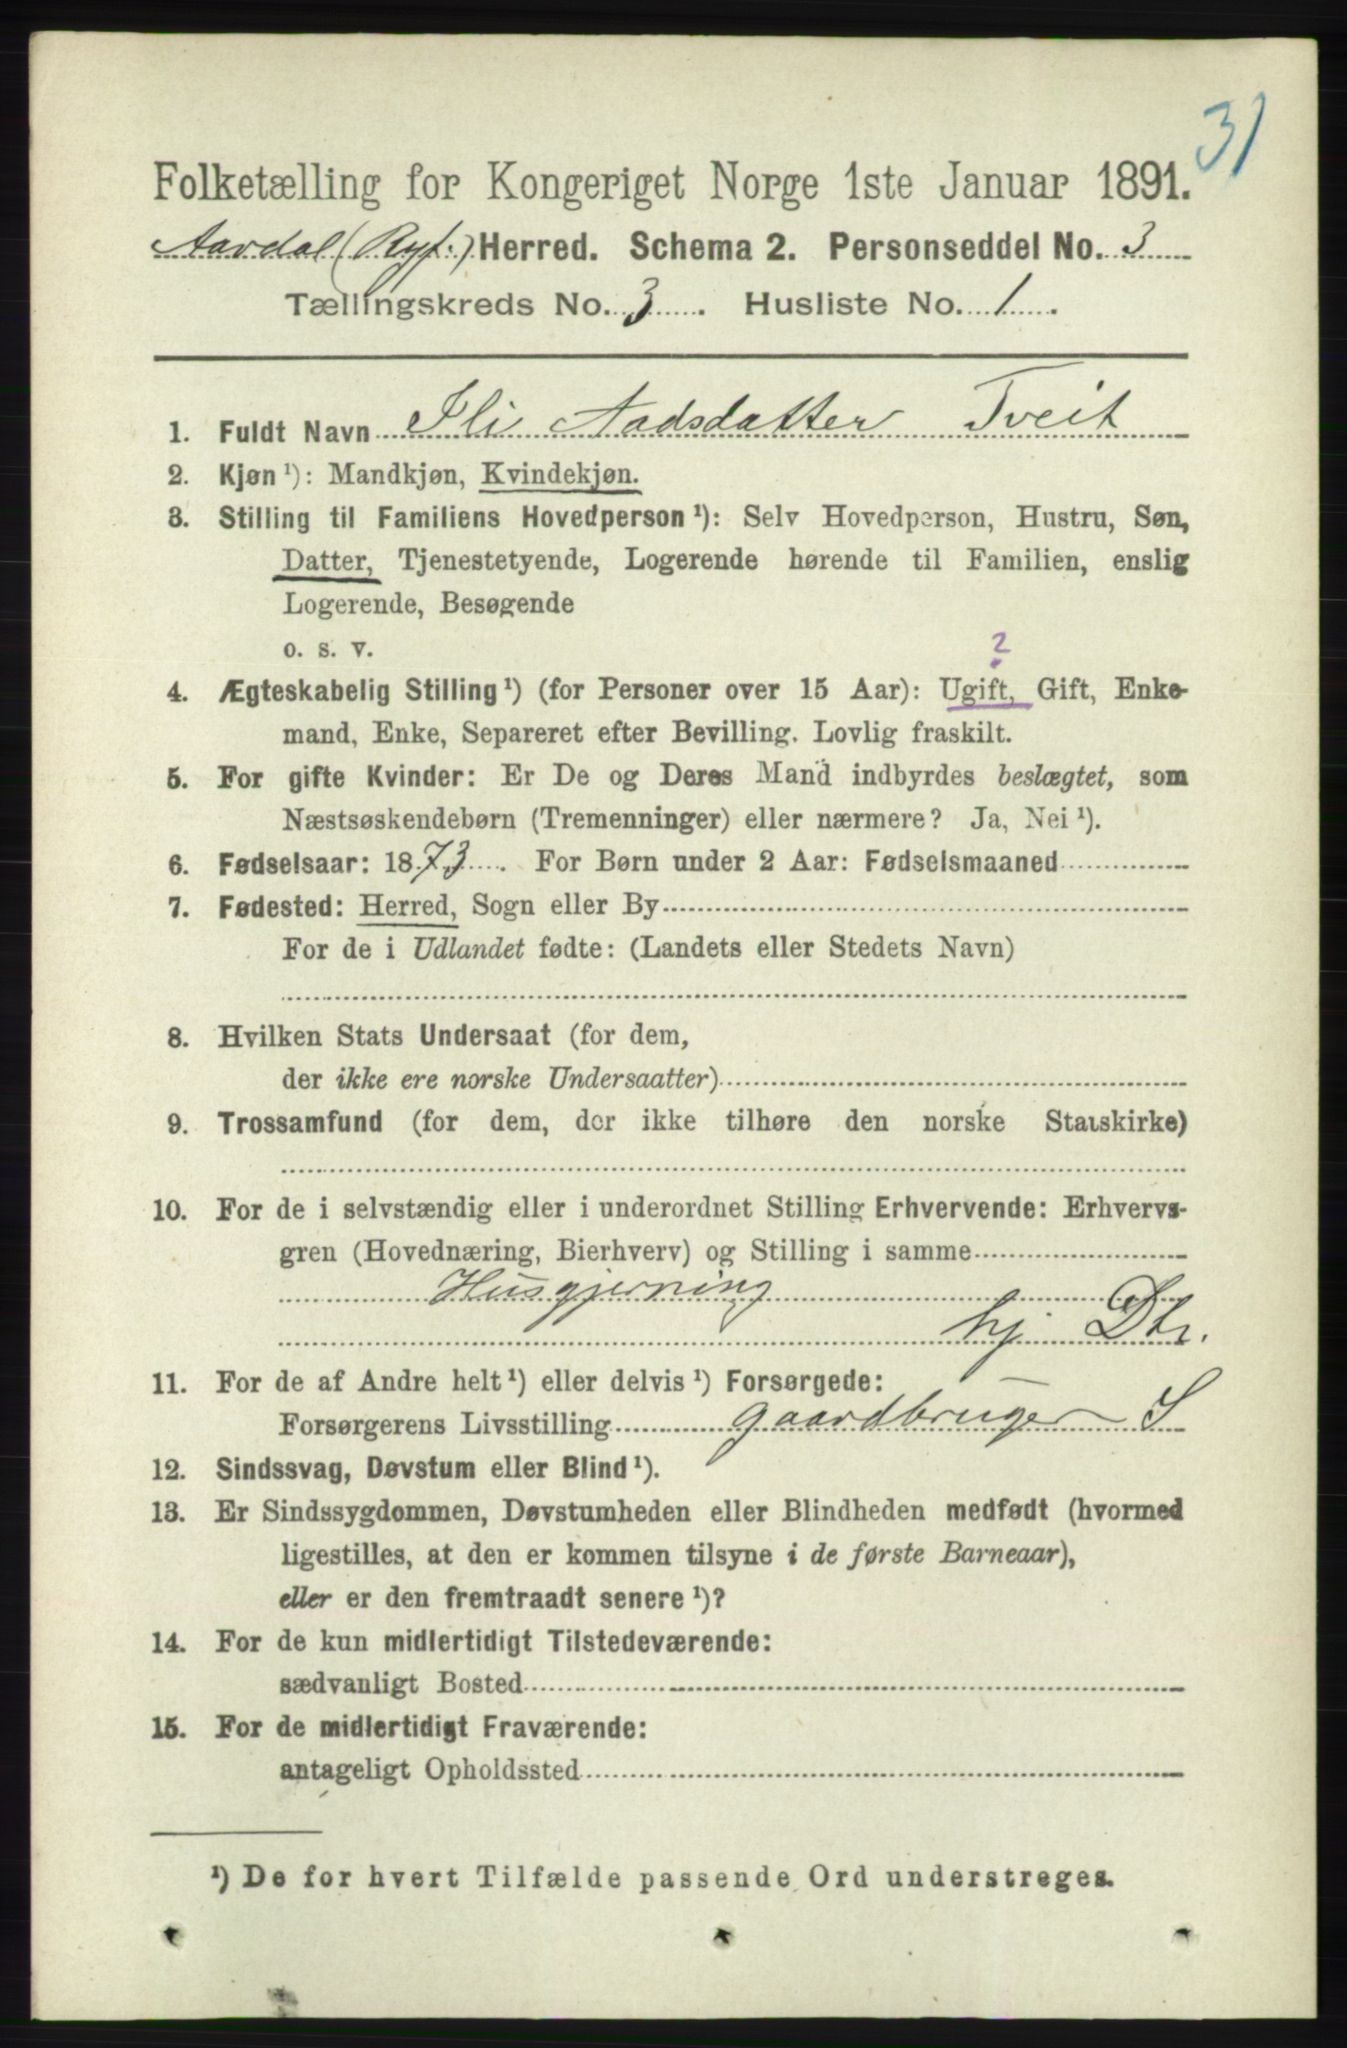 31
Folketælling for Kongeriget Norge 1ste Januar 1891.
Aardal (Ryf.) Herred. Schema 2. Personseddel No. 3
Tællingskreds No. 3. Husliste No. 1.
1. Fuldt Navn Ili Aadsdatter Tveit
2. Kjøn ¹): Mandkjøn, Kvindekjøn.
3. Stilling til Familiens Hovedperson ¹): Selv Hovedperson, Hustru, Søn,
Datter, Tjenestetyende, Logerende hørende til Familien, enslig
Logerende, Besøgende
o. s. v.
?
4. Ægteskabelig Stilling ¹) (for Personer over 15 Aar): Ugift, Gift, Enke-
mand, Enke, Separeret efter Bevilling. Lovlig fraskilt.
5. For gifte Kvinder: Er De og Deres Mand indbyrdes beslægtet, som
Næstsøskendebørn (Tremenninger) eller nærmere? Ja, Nei ¹).
6. Fødselsaar: 1873. For Børn under 2 Aar: Fødselsmaaned
7. Fødested: Herred, Sogn eller By
For de i Udlandet fødte: (Landets eller Stedets Navn)
8. Hvilken Stats Undersaat (for dem,
der ikke ere norske Undersaatter)
9. Trossamfund (for dem, der ikke tilhøre den norske Statskirke)
10. For de i selvstændig eller i underordnet Stilling Erhvervende: Erhvervs-
gren (Hovednæring, Bierhverv) og Stilling i samme
Husgjerning
hj Dtr.
11. For de af Andre helt ¹) eller delvis ¹) Forsørgede:
Forsørgerens Livsstilling gaardbruger S
12. Sindssvag, Døvstum eller Blind ¹).
13. Er Sindssygdommen, Døvstumheden eller Blindheden medfødt (hvormed
ligestilles, at den er kommen tilsyne i de første Barneaar),
eller er den fremtraadt senere ¹)?
14. For de kun midlertidigt Tilstedeværende:
sædvanligt Bosted
15. For de midlertidigt Fraværende:
antageligt Opholdssted
¹) De for hvert Tilfælde passende Ord understreges.